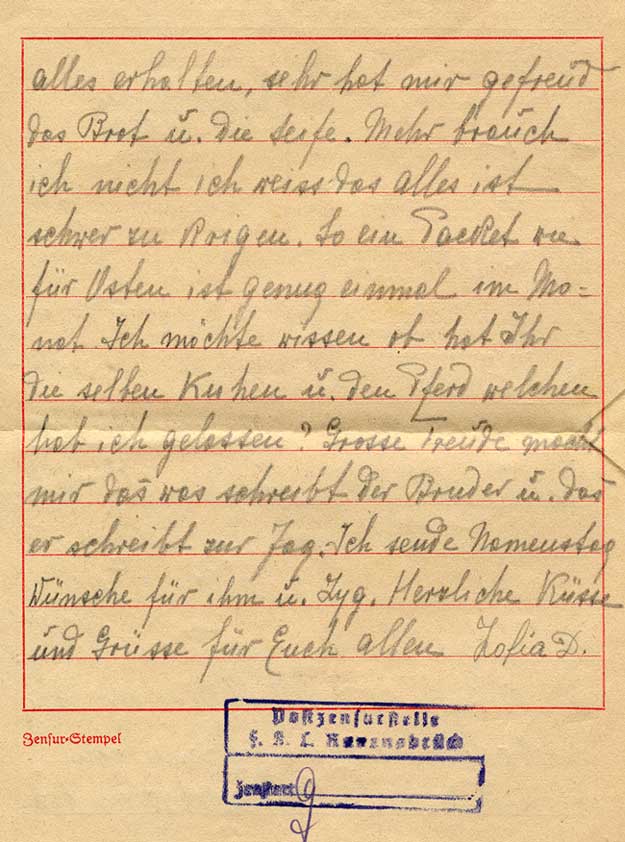 alles erhalten, sehr hat mir gefreud
das Brot u. die seife. Mehr brauch
ich nicht ich weiss das alles ist
schwer zu krigen. So ein Packet wie
für Osten ist genug einmal im Mo-
nat. Ich möchte wissen ob hat Ihr
die selben Kuhen u. den Pferd welchen
hab ich gelassen? Grosse Freude macht
mir das was schreibt der Bruder u. das
er schreibt zur Jag. Ich sende Namenstag
Wünsche für ihm u. Zyg. Herzliche Küsse
und Grüsse für Euch allen Zofia D.
Zensur-Stempel
Postzensurstelle
F. K. L. Ravensbrück
Zensiert